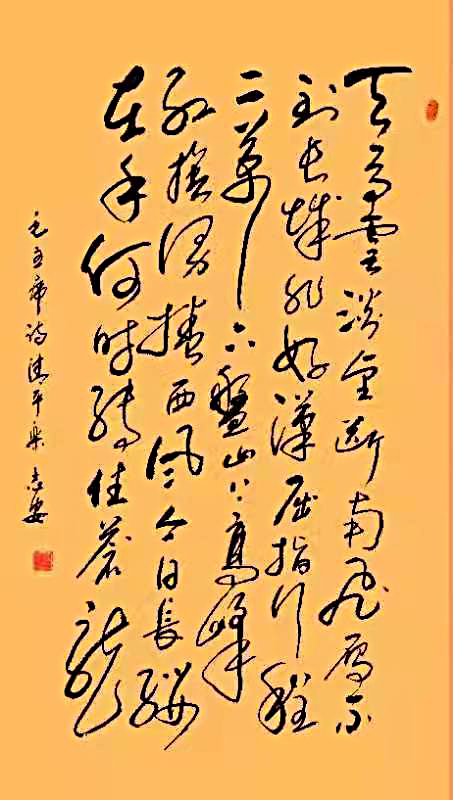 天高雲淡望断南飛雁不
到长城非好漢屈指行程
二萬六盤山上高峰
红旗漫捲西风今日長缨
在手何时缚住蒼龙
毛主席诗清平乐